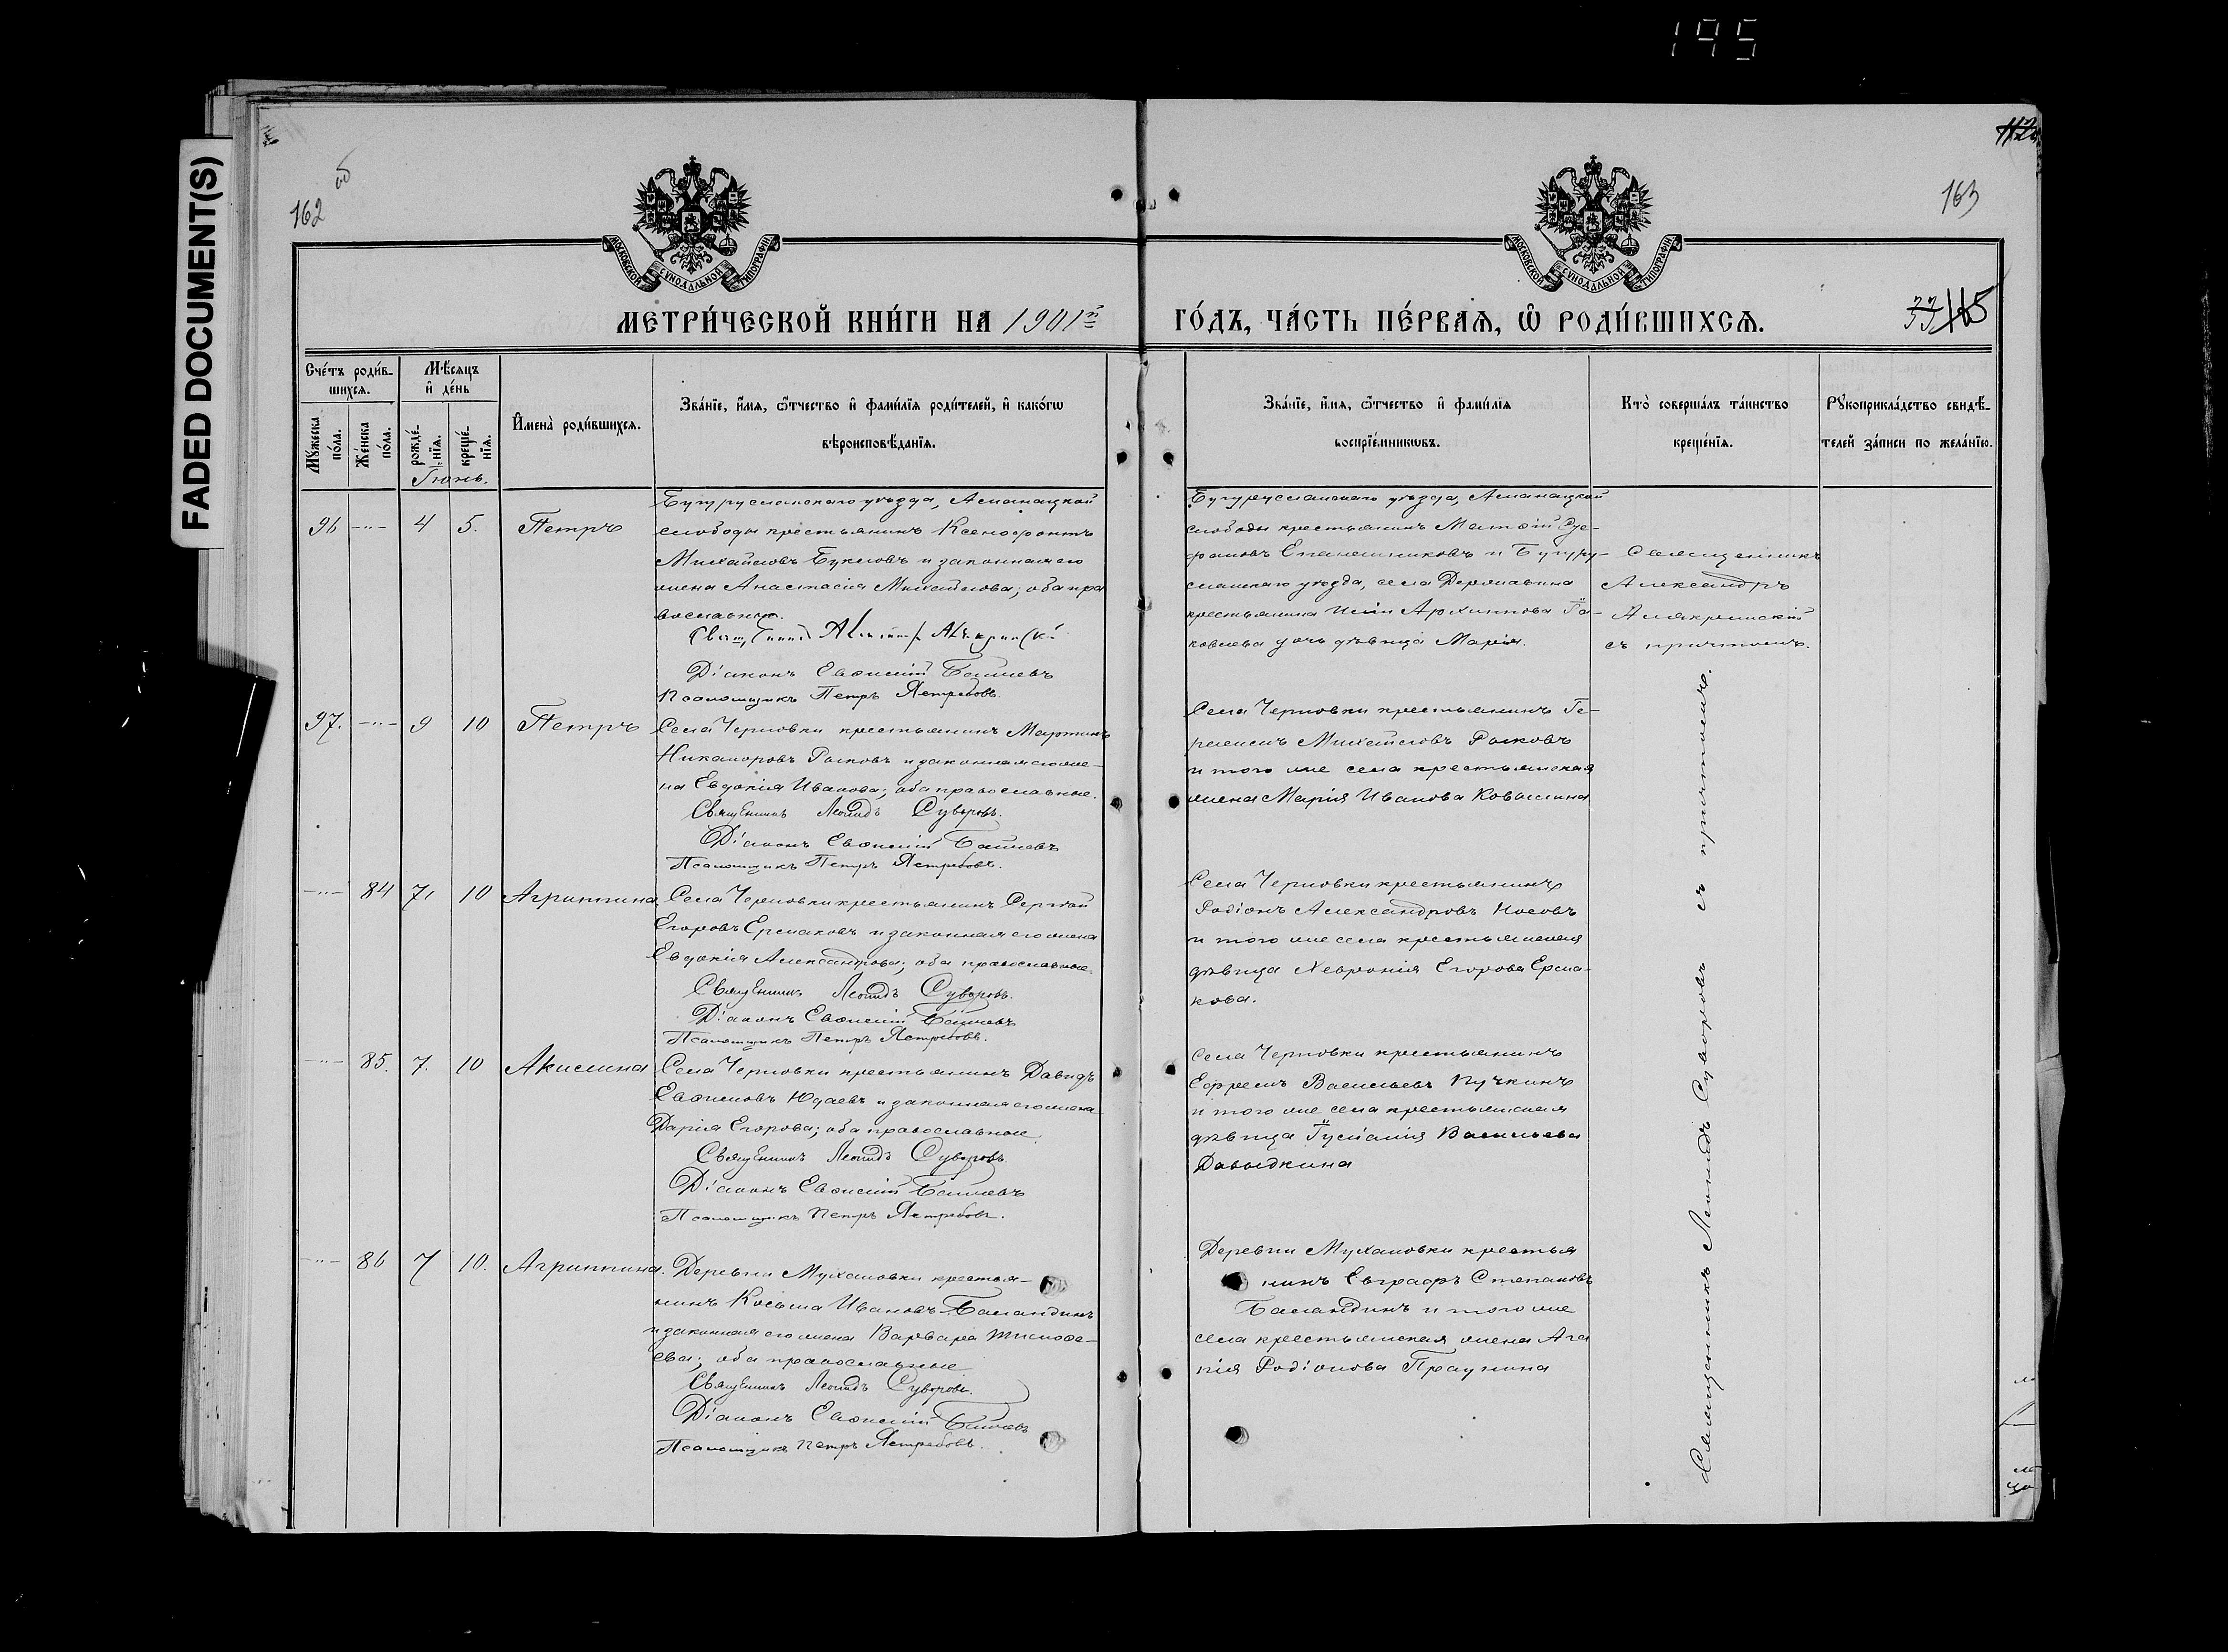 195
FADED DOCUMENT(S)
об
162
163
МОСКОВСКОЙ СѴНОДАЛЬНОЙ ТИПОГРАФІИ
МОСКОВСКОЙ СѴНОДАЛЬНОЙ ТИПОГРАФІИ
МЕТРИ́ЧЕСКОЙ КНИ́ГИ НА 1901й
ГО́ДЪ, ЧА́СТЬ ПЕ́РВАѦ, Ѿ РОДИ́ВШИХСѦ.
33 115
Сче́тъ роди́в-
шихсѧ.
Мꙋ́жеска
по́ла.
Же́нска
по́ла.
Мѣ́сѧцъ
и҆ де́нь
рожде́-
нїѧ.
креще́-
нїѧ.
Іюнь.
И҆мена̀ роди́вшихсѧ.
Зва́нїе, и҆́мѧ, ѻ҆́тчество и҆ фами́лїѧ роди́телей, и҆ како́гѡ
вѣроисповѣ́данїѧ.
Зва́нїе, и҆́мѧ, ѻ҆́тчество и҆ фами́лїѧ
воспрїе́мникѡвъ.
Кто̀ соверша́лъ та́инство
креще́нїѧ.
Рꙋкоприкла́дство свидѣ́-
телей за́писи по жела́нїю.
96 -"- 4 5. Петръ
Бугурусланскаго уѣзда, Асманацкой
слободы крестьянинъ Ксенофонтъ
Михайловъ Букловъ и законная его
жена Анастасія Михайлова; оба пра
вославные.
Діаконъ Евѳимій
Псаломщикъ Петръ Ястребовъ.
Бугурусланскаго уѣзда, Асманацкой
слободы крестьянинъ Матвій
и Бугуру-
сланскаго уѣзда, села Державина
крестьянина Архиппова Іа-
ковлева дочь дѣвица Марія.
Священникъ
Александръ
Алякринскій
съ причтомъ.
97. -"- 9 10 Петръ
Села Черновки крестьянинъ Мартинъ
Никаноровъ Рыковъ и законная его же-
на Евдокія Иванова; оба православные.
Священникъ Леонидъ Суворовъ.
Діаконъ Евѳимій
Псаломщикъ Петръ Ястребовъ.
Села Черновки крестьянинъ Ге-
Михайловъ Рыковъ
и того же села крестьянская
жена Марія Иванова Ковылина
-"- 84 7. 10 Агриппина
Села Черновки крестьянинъ Сергѣй
Егоровъ Ермаковъ и законная его жена
Евдокія Александрова; оба православные.
Священникъ Леонидъ Суворовъ.
Діаконъ Евѳимій
Псаломщикъ Петръ Ястребовъ.
Села Черновки крестьянинъ
Родіонъ Александровъ Носовъ
и того же села крестьянская
дѣвица Хевронія Егорова Ерма-
кова.
-"- 85. 7. 10 Акилина
Села Черновки крестьянинъ Давидъ
Евѳимовъ Юдаевъ и законная его жена
Дарія Егорова; оба православные.
Священникъ Леонидъ Суворовъ
Діаконъ Евѳимій
Псаломщикъ Петръ Ястребовъ.
Села Черновки крестьянинъ
Ефремъ Васильевъ Пучкинъ
и того же села крестьянская
дѣвица Іуліанія Васильева
Давыдкина
-"- 86 7 10. Агриппина.
Деревни Мухановки крестья-
нинъ Косьма Ивановъ Баландинъ
и законная его жена Варвара Тимоѳе-
ева; оба православные
Священникъ Леонидъ Суворовъ.
Діаконъ Евѳимій
Псаломщикъ Петръ Ястребовъ.
Деревни Мухановки крестья
нинъ Евграфъ Степановъ
Баландинъ и того же
села крестьянская жена Ага
пія Родіонова
Священникъ Леонидъ Суворовъ съ причтомъ.